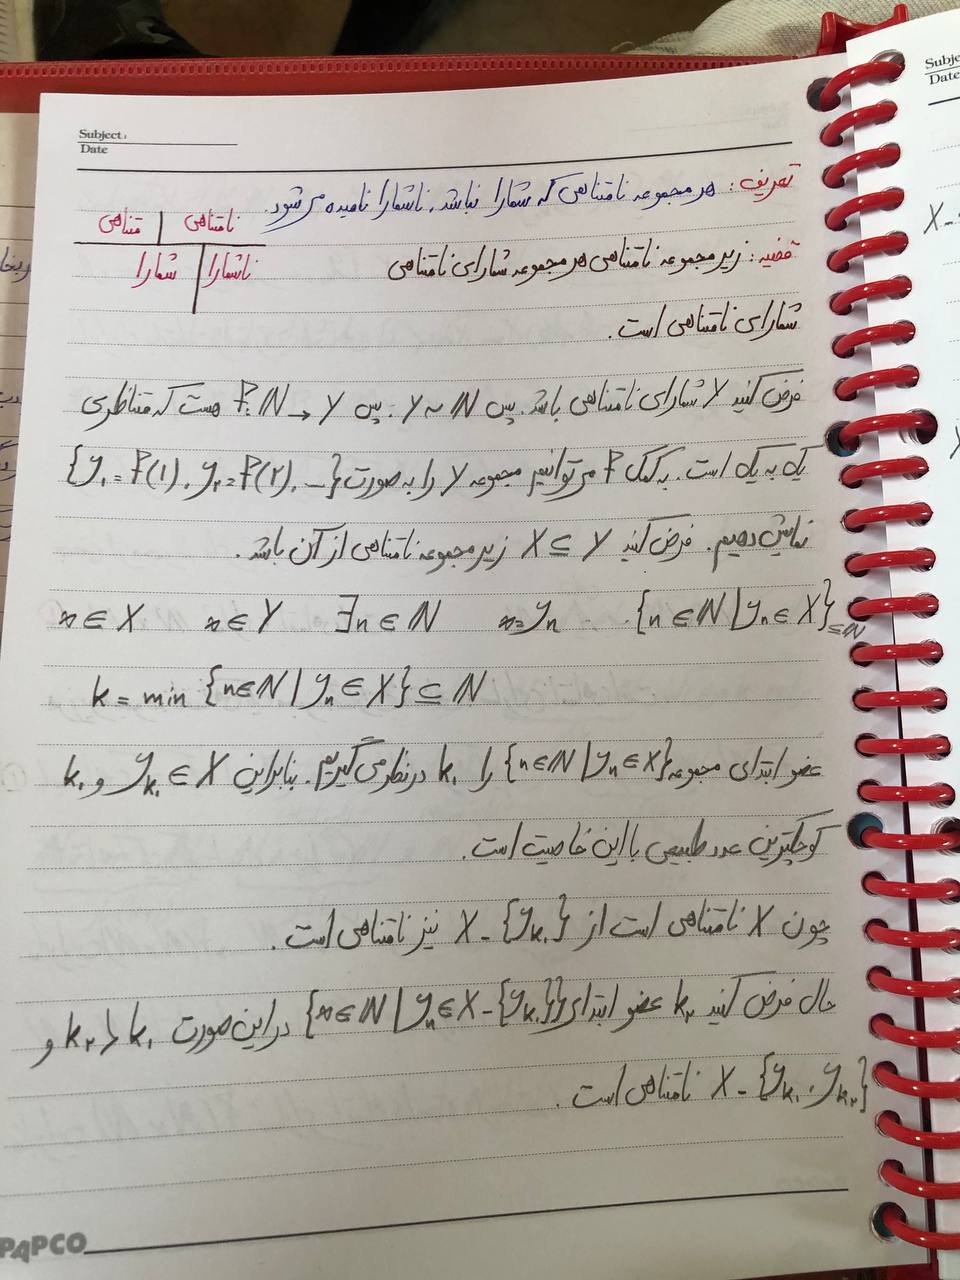 Subject:
Date
تعریف: هر مجموعه نامتناهی که شمارا نباشد، ناشمارا نامیده می شود.
متناهی | نامتناهی
شمارا | ناشمارا
قضیه: زیر مجموعه نامتناهی هر مجموعه شمارای نامتناهی
شمارای نامتناهی است.
فرض کنید Y شمارای نامتناهی باشد. پس Y ~ N. پس f: N → Y هست که متناظری
یک به یک است. به کمک f می توانیم مجموعه Y را به صورت {y₁ = f(1), y₂ = f(2), ...}
نمایش دهیم. فرض کنید X ⊆ Y زیر مجموعه نامتناهی از آن باشد.
x ∈ X x ∈ Y ∃n ∈ N x = yₙ . {n ∈ N | yₙ ∈ X} ⊆ N
k = min {n ∈ N | yₙ ∈ X} ⊆ N
عضو ابتدای مجموعه {n ∈ N | yₙ ∈ X} را k₁ در نظر می گیریم. بنابراین y_k₁ ∈ X و k₁
کوچکترین عدد طبیعی با این خاصیت است.
چون X نامتناهی است از X - {y_k₁} نیز نامتناهی است.
حال فرض کنید k₂ عضو ابتدای {n ∈ N | yₙ ∈ X - {y_k₁}} در این صورت k₂ > k₁ و
X - {y_k₁, y_k₂} نامتناهی است.
PAPCO
Subje
Date
X -